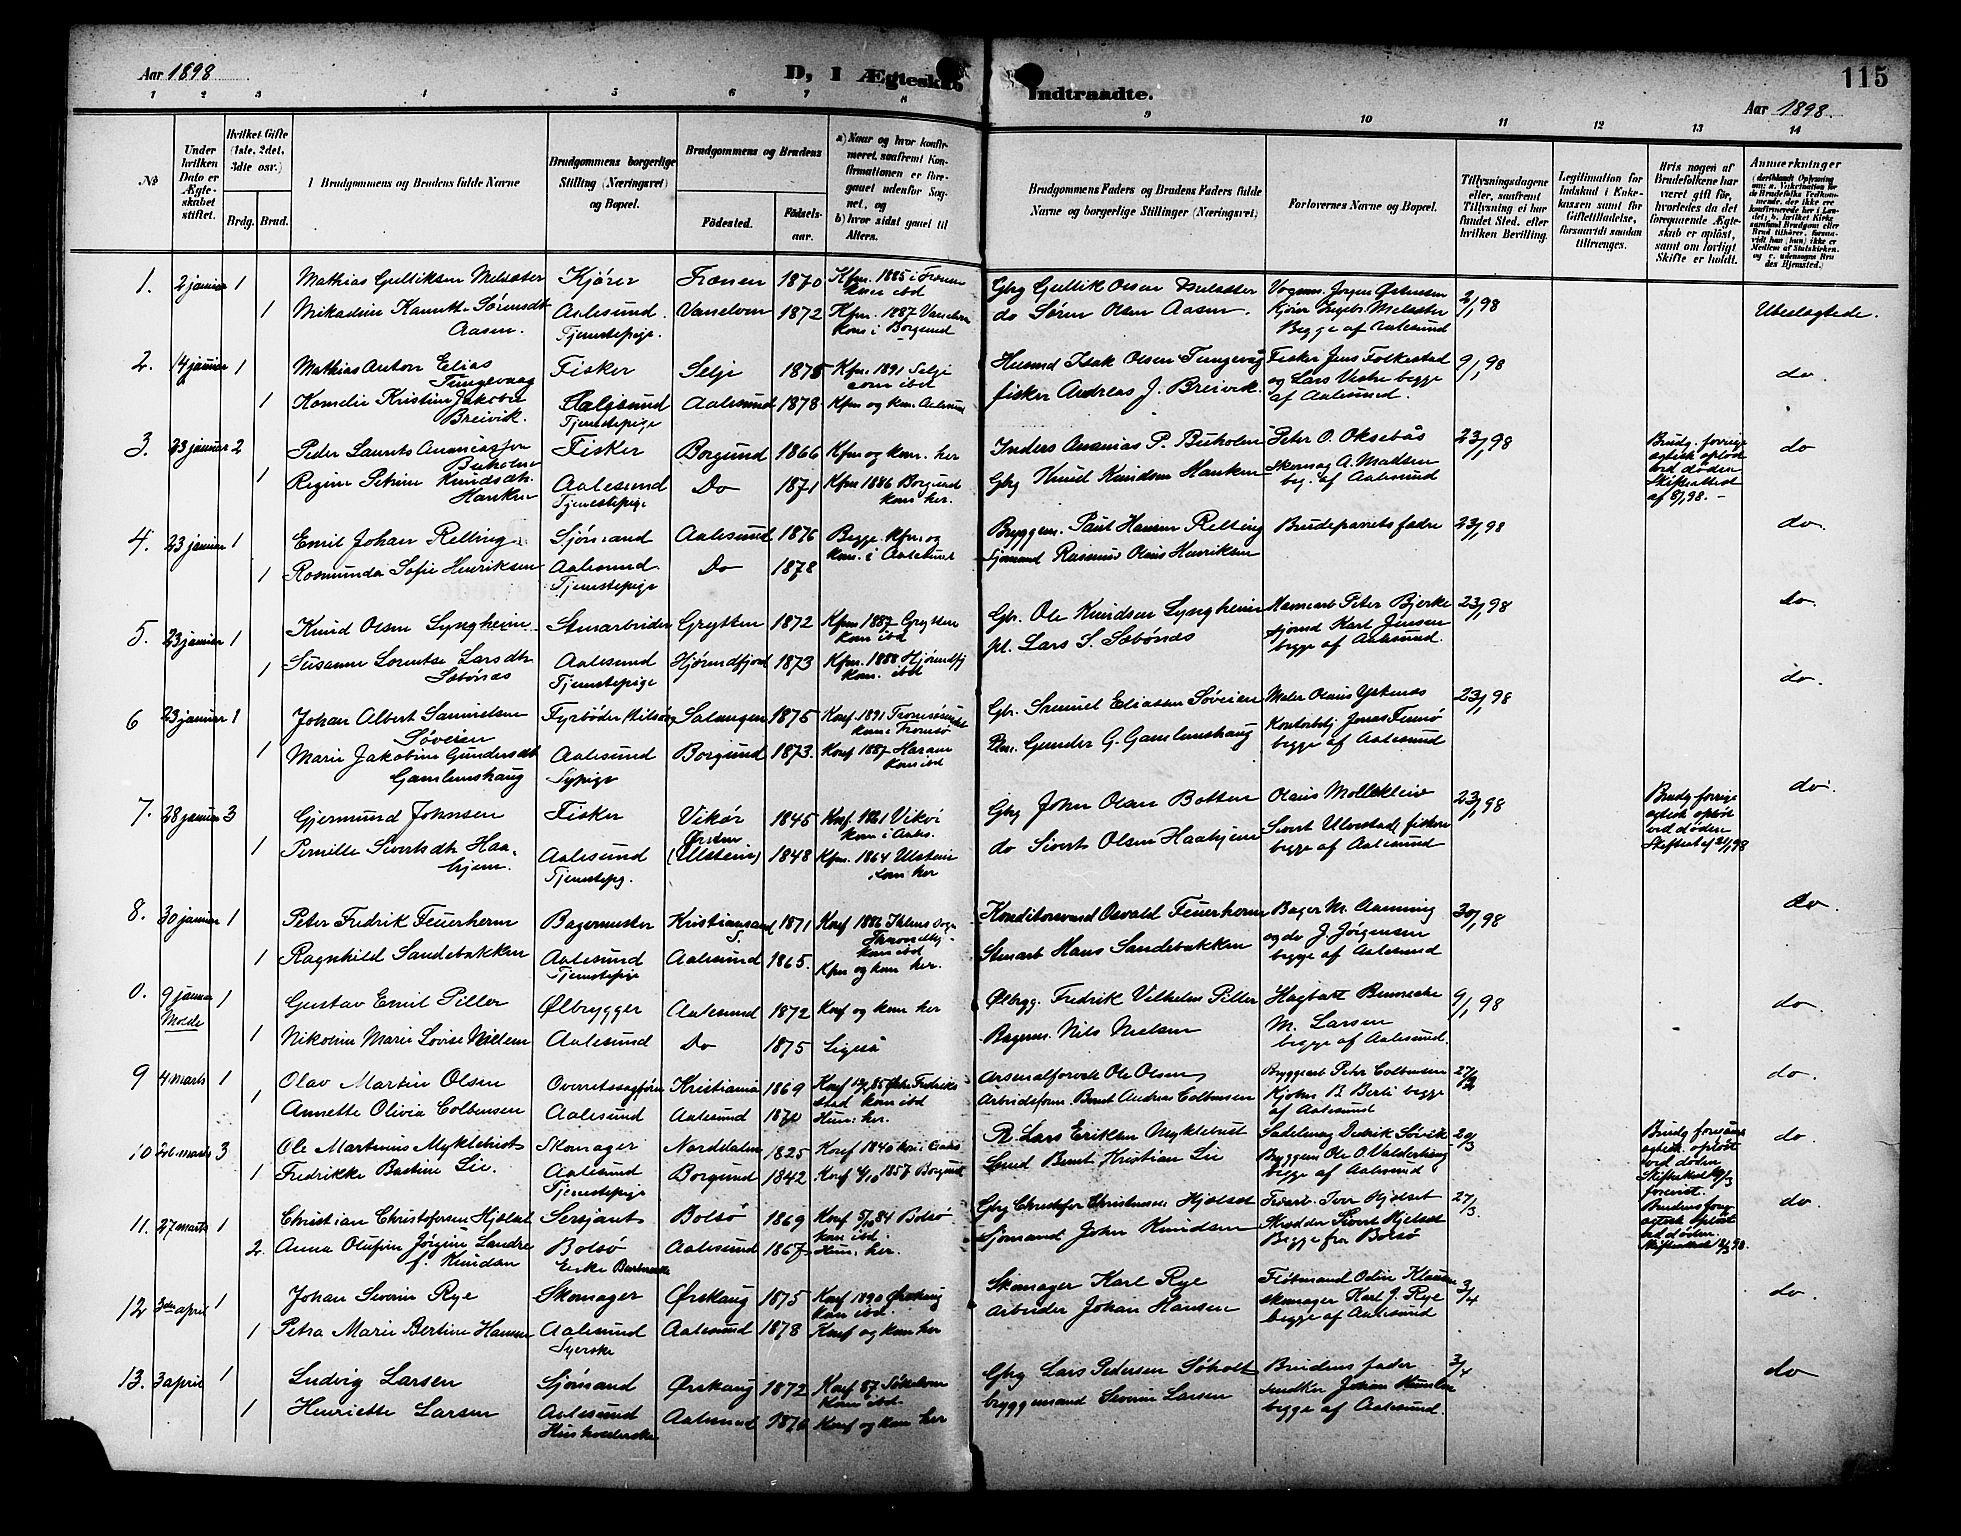 Aar 1898
D, I Ægteskab Indtraadte.
115
Aar 1898.
1 2 3 4 5 6 7 8 9 10 11 12 13 14
No
Under hvilken Dato er Ægteskabet stiftet.
Hvilket Gifte (1ste, 2det, 3die osv.)
Brdg. Brud.
Brudgommens og Brudens fulde Navne
Brudgommens borgerlige Stilling (Næringsvei) og Bopæl.
Brudgommens og Brudens
Fødested. Fødselsaar.
a) Naar og hvor konfirmeret, saafremt Konfirmationen er foregaaet udenfor Sognet, og
b) hvor sidst gaaet til Alters.
Brudgommens Faders og Brudens Faders fulde Navne og borgerlige Stillinger (Næringsvei)
Forlovernes Navne og Bopæl.
Tillysningsdagene eller, saafremt Tillysning ei har fundet Sted, efter hvilken Bevilling.
Legitimation for Indskud i Enkekassen samt for Giftetilladelse, forsaavidt saadan tiltrænges.
Hvis nogen af Brudefolkene har været gift før, hvorledes da det foregaaende Ægteskab er opløst, samt om lovligt Skifte er holdt.
Anmærkninger
1. 2 januar 1 Mathias Gulliksen Melsæter Kjører Frænen 1870 Kfm. 1885 i Frænen kom ibd Gbrg Gullik Olsen Melsæter Vognm. Jørgen Østensen 2/1 98
1 Nikadine Kanutte Sørensdt. Aasen. Aalesund. Tjenestepige. Vanelven 1872 Kfm. 1887 Vanelven kom i Borgund do Søren Olsen Aasen. Kjører Ingbr. Melsæter Begge af Aalesund Ubeslægtede.
2. 14 januar 1 Mathias Anton Elias Tungevaag Fisker Selje 1875 Kfm. 1891 Selje kom ibd Husmd Isak Olsen Tungevåg Fisker Jens Folkestad 9/1 98
1 Kornelie Kristine Jakobie Breivik. Aalesund Tjenestepige Aalesund 1878 Kfm og kom. Aalesund fisker Andreas J. Breivik og Lars Vestre begge af Aalesund. do.
3. 23 januar 2 Peder Laurits Ananiassen Buholm Fisker Borgund 1866 Kfm og kom. her Inders Ananias P. Buholm Peter O. Oksebås 23/1 98 Brudg. forrige ægtesk opløst ved døden Skifteattest af 8/1 98. - do
1 Regine Petrine Knudsdt. Hanken Aalesund Tjenestepige Do 1871 Kfm 1886 Borgund kom her. Gbrg Knud Knudsen Hanken Skomag A. Madsen beg. af Aalesund
4. 23 januar 1 Emil Johan Relling Sjømand Aalesund 1876 Begge kfm. og kom. i Aalesund Bryggem. Paul Hansen Relling Brudeparrets fædre 23/1 98 do.
1 Rosmunda Sofie Henriksen Aalesund. Tjenestepige Do 1878 Sjømand Rasmus Olaus Henriksen
5. 23 januar 1 Knud Olsen Lyngheim Stenarbeider Grytten 1872 Kfm 1887 Grytten kom ibd Gbr. Ole Knudsen Lyngheim Peter Bjerke 23/1 98 do.
1 Susanne Lorentse Larsdt. Sæbønæs Aalesund Tjenestepige Hjørundfjord 1873 Kfm. 1888 Hjørundfj kom. ibd pl. Lars S. Sæbønæs sjømd Karl Jensen begge af Aalesund.
6 23 januar 1 Johan Albert Samuelsen Søveien Fyrbøder Salangen 1875 Konf. 1891 Tromsøsundet kom i Tromsø Gbr. Samuel Eliassen Søveien Maler Olaus Ystenæs 23/1 98 do.
1 Marie Jakobine Gundersdt. Gamlemshaug Aalesund Sypige Borgund 1873. Konf 1887 Haram kom ibd Gunder G. Gamlemshaug Kontorbetj Jonas Finnø begge af Aalesund
7. 28 januar 3 Gjermund Johnsen Fisker Vikør 1845 Konf. 1861 Vikør kom i Aales. Gbrg John Olsen Botten Olaus Molleklev 23/1 98 Brudg forrige ægtesk opløst ved døden do.
1 Pernille Sivertsdt. Haahjem. Aalesund Tjenestepg. Ørsten (Ulstein) 1848 Kfm. 1864 Ulstein kom her do Sivert Olsen Haahjem Sivert Ulvestad, fiskere begge af Aalesund
8. 30 januar 1 Peter Fredrik Feuerherm Bagermester Kristiansund 1871 Konf 1886 Ihlens Sogn Trondhj. kom ibd Konditorsvend Osvald Feuerherm Bager M. Aamning 30/1 98 do.
1 Ragnhild Sandebakken Aalesund Tjenestepige Aalesund 1865. Kfm og kom her. Stenarb Hans Sandebakken og do J. Jørgensen begge af Aalesund
0. 9 januar Molde 1 Gustav Emil Piller Ølbrygger Aalesund 1872 Konf og kom her Ølbrygg. Fredrik Vilhelm Piller Hagbart Bennecke 9/1 98 do.
1 Nikoline Marie Lovise Nielsen Aalesund Do 1875 Ligeså Bagerm. Nils Nielsen M. Larsen begge af Aalesund.
9 4 marts 1 Olav Martin Olsen Overretssagfører Kristiania 1869 Arsenalforvalt Ole Olsen Bryggearb Peter Colbensen 27/2 do.
1 Annette Olivia Colbensen Aalesund Aalesund Hun. her. Arbeidsform Bernt Andreas Colbensen Kjøbm B. Berli begge af Aalesund
10 26 marts 3 Ole Martinius Myklebust Skomager Norddalen 1825 Konf 1840 Lars Eriksen Myklebust Sadelmag Dedrik Søvik 20/3 Brudg ægtesk. opløst ved døden do.
1 Fredrikke Bastine Lie. Aalesund Tjenestepige Borgund 1842 Konf 4/10 1857 Borgund Smed Bernt Kristian Lie Bryggem Ole O. Valderhaug begge af Aalesund
11. 27 marts 1 Christian Christofersen Hjelset Sersjant Bolsø 1869 Konf 5/10 84 Bolsø kom ibd. Gbrg Christofer Christensen Hjelset Iver Hjelset 27/3. Brudens ægtesk opløst ved døden. do
2. Anna Olufine Jørgine Landre f. Knudsen Bolsø Aalesund 1867 Hun. her. Sjømand John Knudsen Skrædder Sivert Hjelset Begge fra Bolsø
12 3die april 1 Johan Severin Rye Skomager Ørskaug 1875 Konf 1890 Ørskaug kom ibd. Skomager Karl Rye Fløtmand Odin Klausen 3/4 do.
1 Petra Marie Bertine Hansen Aalesund Syerske Aalesund 1878 Konf og kom her Arbeider Johan Hansen skomager Karl J. Rye begge af Aalesund
13. 3 april 1 Ludvig Larsen Sjømand Ørskaug 1872 Konf 87 kom ibd. Gbrg Lars Pedersen Søholt Brudens fader 3/4 do
1 Henriette Larsen Aalesund Husholderske Aalesund Konf og kom her bryggemand Severin Larsen begge af Aalesund.